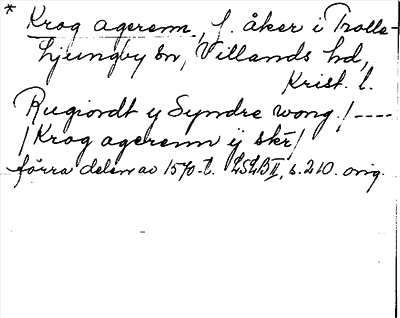 * Krog agerenn, f. åker i Trolle-
Ljungby sn, Villands hd,
Krist. l.
Rugiordt y Syndre wong /----
/ Krog agerenn ÿ skr /
förra delen av 1570-t. LSLB II, s. 210. orig.